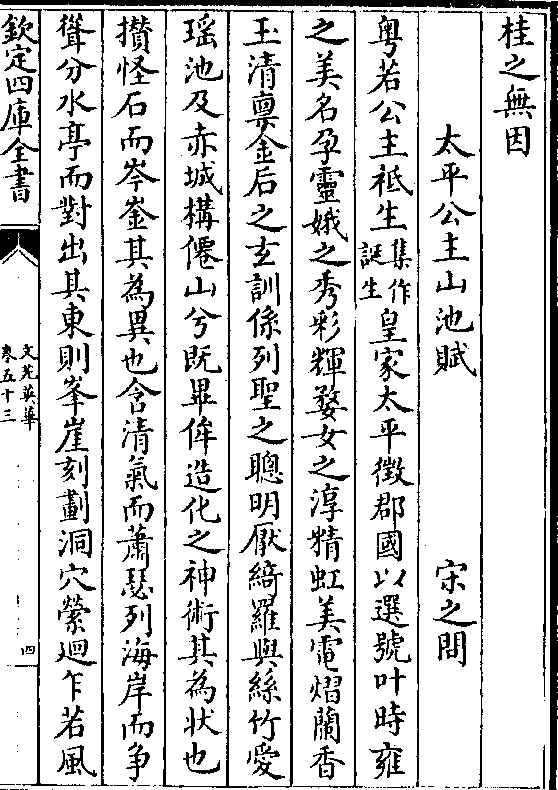 桂之無因
太平公主山池賦 宋之問
粤若公主袛生集作誕生皇家太平徵郡國以選號叶時雍
之美名孕靈娥之秀彩輝婺女之淳精虹美電熠蘭香
玉清禀金后之玄訓係列聖之聰明厭綺羅與絲竹愛
瑶池及赤城構僊山兮既畢侔造化之神術其為狀也
攅怪石而岑崟其為異也含清氣而蕭瑟列海岸而争
聳分水亭而對出其東則峯崖刻劃洞穴縈迴乍若風
欽定四庫全書
文苑英華
卷五十三
四